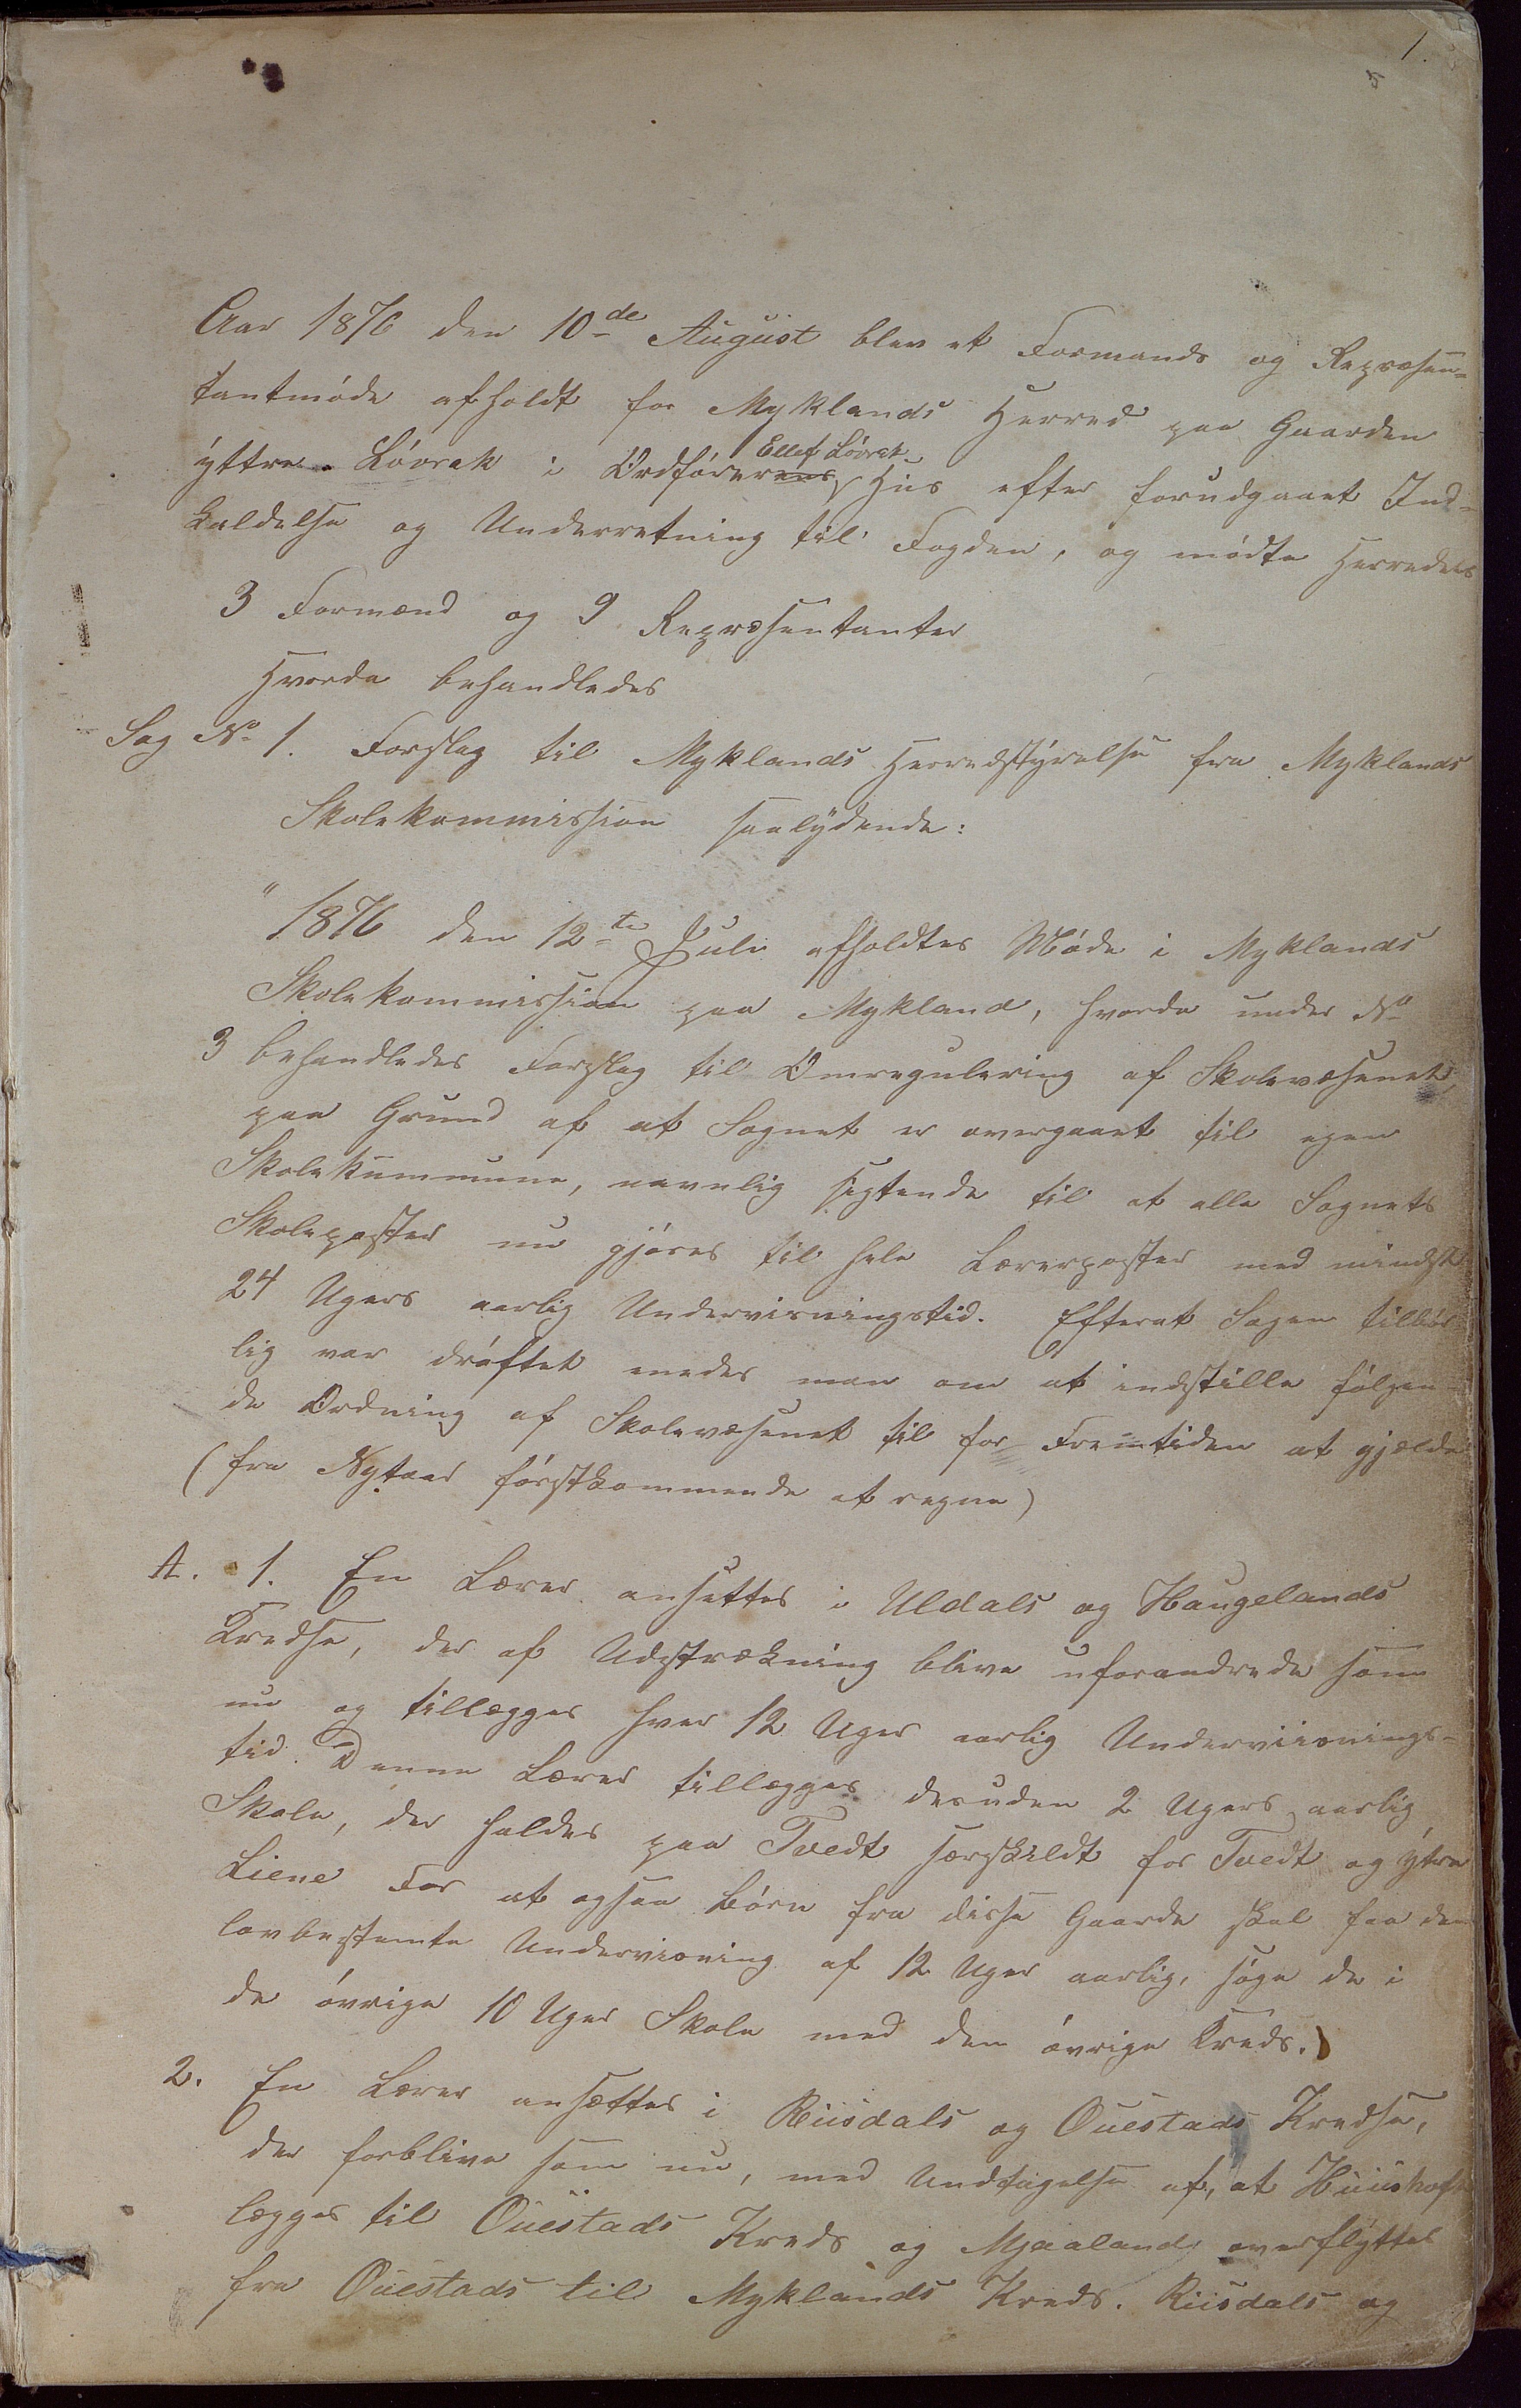 1.
5
Aar 1876 den 10de August blev et Formands og Repræsen-
tantmøde afholdt for Myklands Herred paa Gaarden
yttre Lövrak i Ordførerens Ellef Lövrak Hus efter forudgaaet Ind-
kaldelse og Underretning til Fogden, og mødte Herredets
3 Formænd og 9 Repræsentanter
Hvorda behandledes
Sag No 1. Forslag til Myklands Herredstyrelse fra Myklands
Skolekommission saalydende:
"1876 den 12te Juli afholdtes Møde i Myklands
Skolekommission paa Mykland, hvorda under No
3 behandledes Forslag til Omregulering af Skolevæsenet
paa Grund af at Sognet er overgaaet til egen
Skolekummune, navnlig sigtende til at alle Sognets
Skoleposter nu gjøres til hele Lærerposter med mindst
24 Ugers aarlig Undervisningstid. Efterat Sagen tilbør-
lig var drøftet enedes man om at indstille følgen-
de Ordning af Skolevæsenet til for Fremtiden at gjælde
(fra Nytaar førstkommende at regne)
A. 1. En Lærer ansettes i Uldals og Haugelands
Kredse, der af Udstrækning blive uforandrede som
nu og tillægges hver 12 Uger aarlig Underviisnings-
tid. Denne Lærer tillægges desuden 2 Ugers aarlig
Skole, der holdes paa Tvedt særskildt for Tvedt og ytre
Liene For at ogsaa Børn fra disse Gaarde skal faa den
lovbestemte Undervisning af 12 Uger aarlig, søge de i
de øvrige 10 Uger Skole med den øvrige Kreds.)
2. En Lærer ansættes i Riisdals og Ouestads Kredse,
der forblive som nu, med Undtagelse af, at Huushoft
lægges til Ouestads Kreds og Mjaaland overflyttes
fra Ouestads til Myklands Kreds. Riisdals og